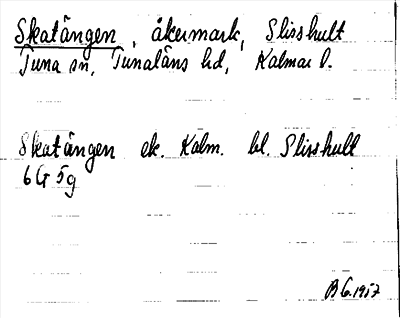 Skatängen, åkermark, Slisshult
Tuna sn, Tunaläns hd, Kalmar l.
Skatängen ek. Kalm. bl. Slisshult
6G5g
BG.1957